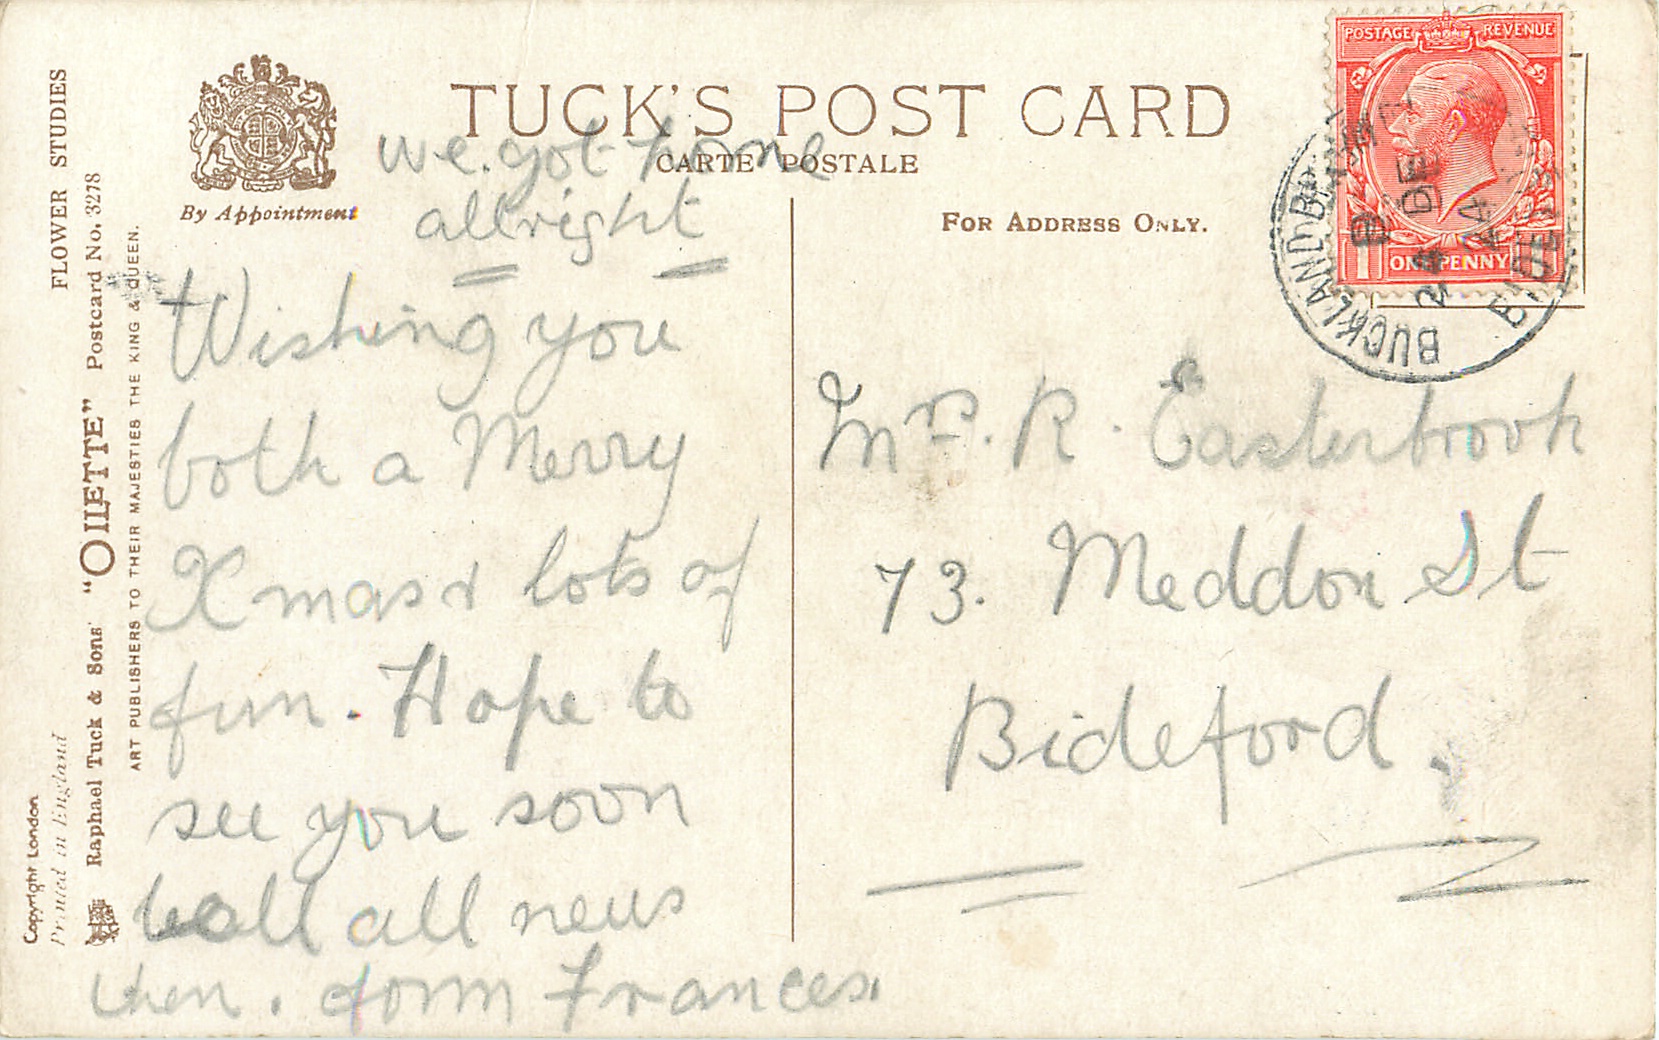 TUCK'S POST CARD
CARTE POSTALE
By Appointment
FOR ADDRESS ONLY.
POSTAGE REVENUE
ONE PENNY
BUCKLAND BR
B
24 DE
24
BIDE
FLOWER STUDIES
Raphael Tuck & Sons' "OILETTE" Postcard No. 3278
ART PUBLISHERS TO THEIR MAJESTIES THE KING & QUEEN.
Copyright London
Printed in England
we. got home
allright
Wishing you
both a Merry
Xmas & lots of
fun. Hope to
see you soon
all news
then. form Frances.
Mrs. R. Easterbrook
73. Meddon St
Bideford.